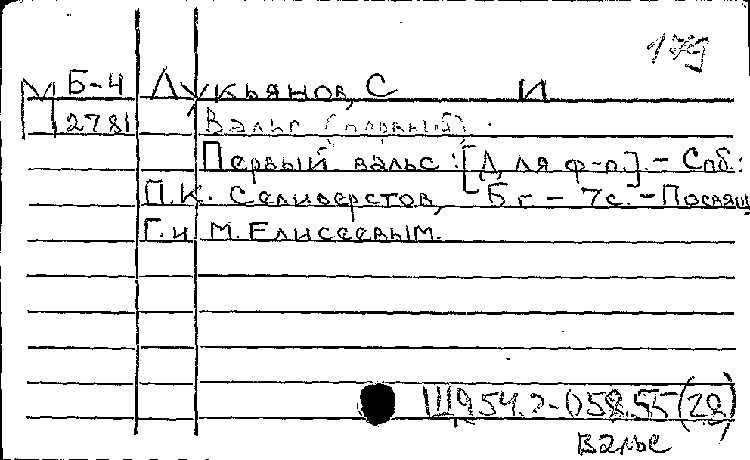 179
М Б-4 Лукьянов, С И
12781 Вальс (первый).
Первый вальс: [Для ф-п.]. - Спб.:
П.К. Селиверстов, Бг - 7с. - Посвящ
Г. и М. Елисеевым.
Щ954.2-058.55(28)
Вальс